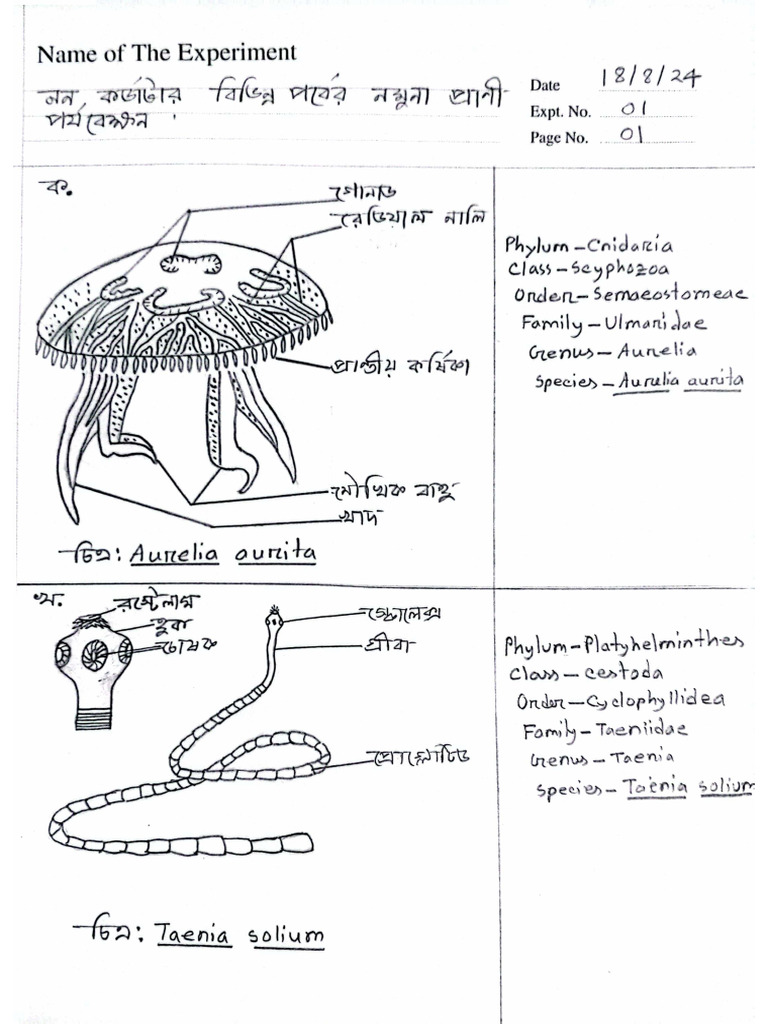 Name of The Experiment
নন কর্ডাটার বিভিন্ন পর্বের নমুনা প্রাণী
পর্যবেক্ষন।
Date 18/8/24
Expt. No. 01
Page No. 01
ক.
গোনাড
রেডিয়াল নালি
প্রান্তীয় কর্ষিকা
মৌখিক বাহু
খাদ
চিত্র: Aurelia aurita
Phylum - Cnidaria
Class - Scyphozoa
Order - Semaeostomeae
Family - Ulmaridae
Genus - Aurelia
Species - Aurelia aurita
খ.
রস্টেলাম
হুক
চোষক
স্কোলেক্স
গ্রীবা
প্রোগ্লোটিড
চিত্র: Taenia solium
Phylum - Platyhelminthes
Class - cestoda
Order - Cyclophyllidea
Family - Taeniidae
Genus - Taenia
Species - Taenia solium